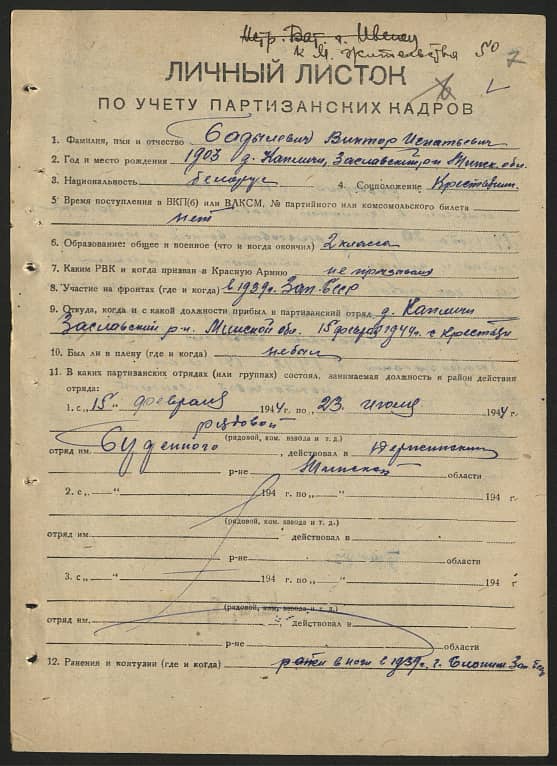 к м. жительства 50 7
ЛИЧНЫЙ ЛИСТОК
ПО УЧЕТУ ПАРТИЗАНСКИХ КАДРОВ
1. Фамилия, имя и отчество Бадылевич Виктор Игнатьевич
2. Год и место рождения 1903 д. Капличи, Заславский р-н Минск. обл.
3. Национальность беларус 4. Соцположение Крестьянин
5. Время поступления в ВКП(б) или ВЛКСМ, № партийного или комсомольского билета
нет
6. Образование: общее и военное (что и когда окончил) 2 класса
7. Каким РВК и когда призван в Красную Армию не призывался
8. Участие на фронтах (где и когда) в 1939г. Зап.
9. Откуда, когда и с какой должности прибыл в партизанский отряд д. Капличи
Заславский р-н. Минской обл. 15 февраля 1944 г. с
10. Был ли в плену (где и когда) небыл
11. В каких партизанских отрядах (или группах) состоял, занимаемая должность и район действия
отряда:
1. с „15" февраля 1944 г. по „23" июля 1944 г.
рядовой
(рядовой, ком. взвода и т. д.)
отряд им. Буденного, действовал в
р-не Минской области
2. с „ " 194 г. по „ " 194 г.
(рядовой, ком. взвода и т. д.)
отряд им. действовал в
р-не области
3. с „ " 194 г. по „ " 194 г.
(рядовой, ком. взвода и т. д.)
отряд им. , действовал в
р-не области
12. Ранения и контузии (где и когда) ранен в ноги в 1939г. г. Зап.